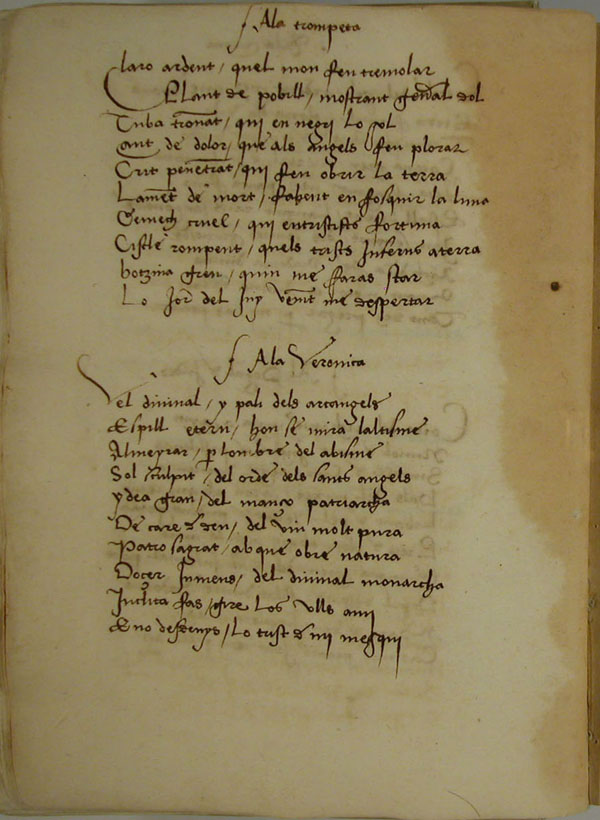 Ala trompeta
Claro ardent / quel mon feu tremolar
Plant de pobill / mostrant gen̄al dol
Tuba tronāt / qui en negri lo sol
Cant de dolor / que als angels feu plorar
Crit penetrāt / qui feu obrir la terra
Lamēt de mort / fahent en fosquir la luna
Gemech cruel / qui entristists fortuna
Cisclē rompent / quels trists Inferns aterra
botzina greu / quin me faras star
Lo Jor del Juy venīt me despertar
Ala Veronica
Vel diuinal / y pali dels arcangels
Espill etern / hon se mira laltisme
Almeyrar / p̱ lombre del abisme
Sol sculpit / del orde dels sants angels
ydea gran / del manco patriarcha
De care
 / del viu molt pura
Patro sagrat / ab que obre natura
Docer Inmens / del diuinal monarcha
Inclita fas / gire los vlls a mi
E no desdenys / lo trist de mi mesqui